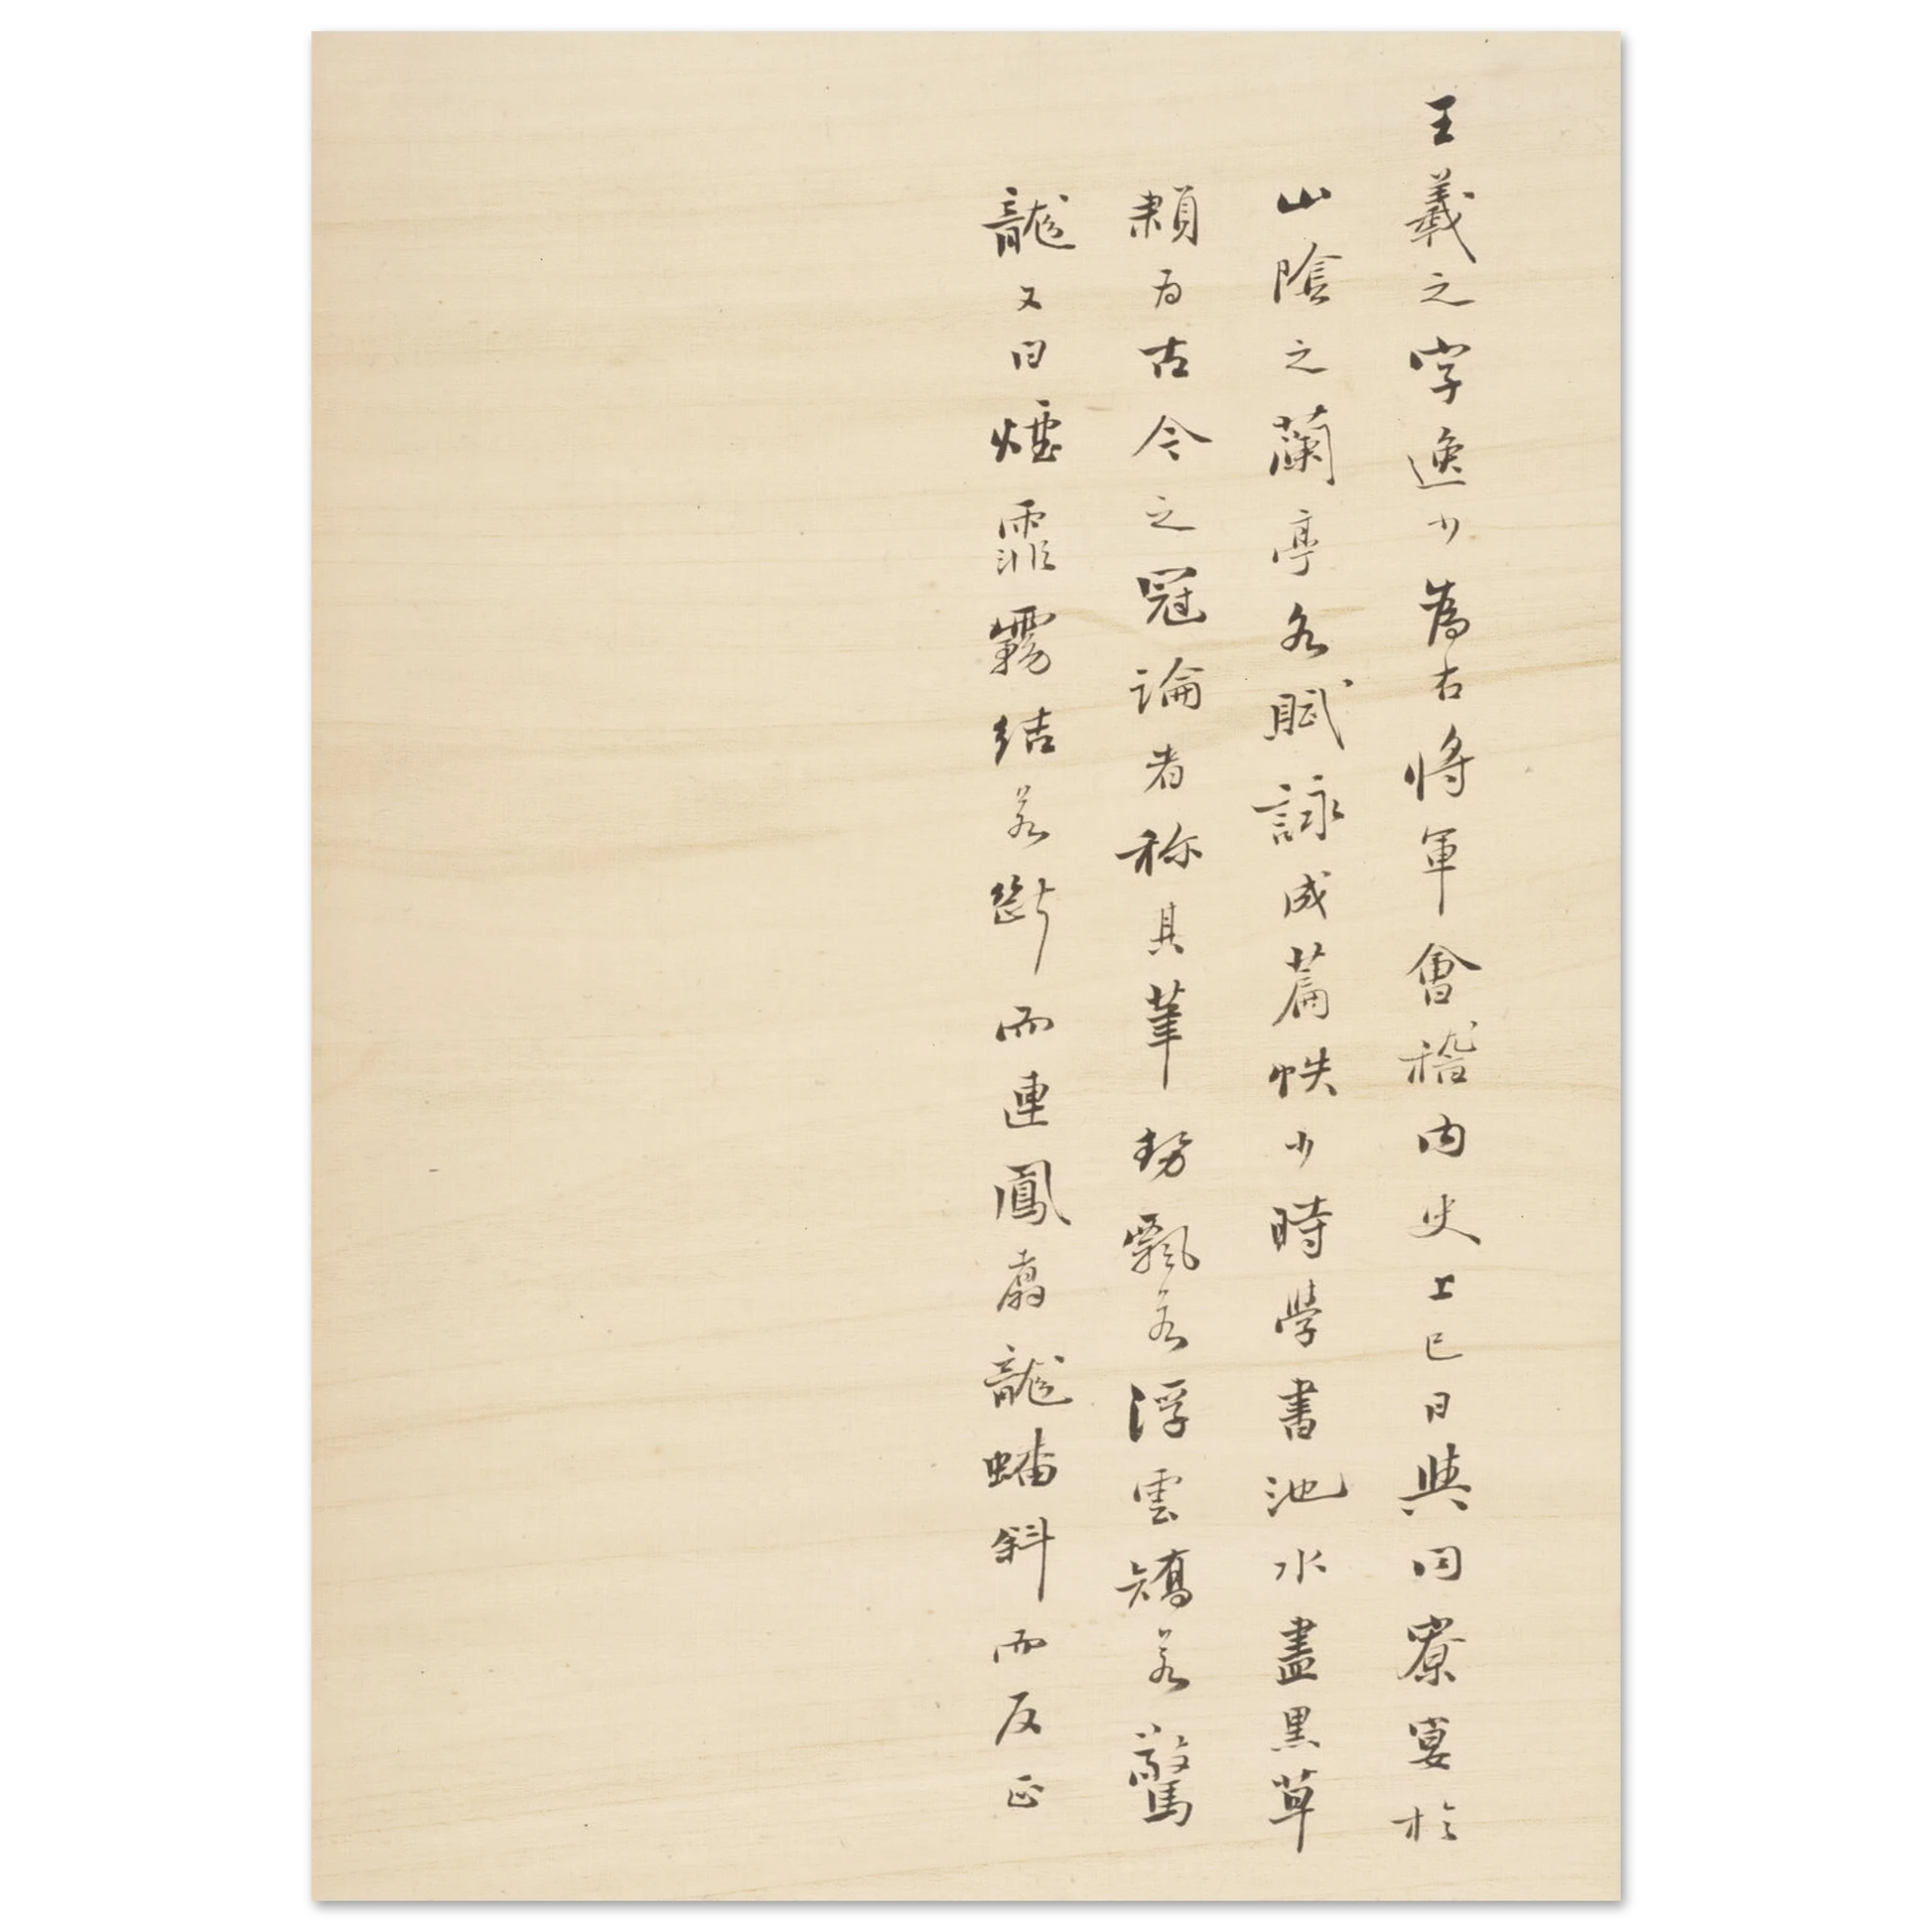 王羲之字逸少為右将軍會稽内史上巳日與同寮宴於
山陰之蘭亭各賦詠成篇帙少時學書池水盡黒草
隸为古今之冠論者称其筆勢飄若浮雲矯若驚
龍又曰煙霏霧結若斷而連鳳翥龍蟠斜而反正